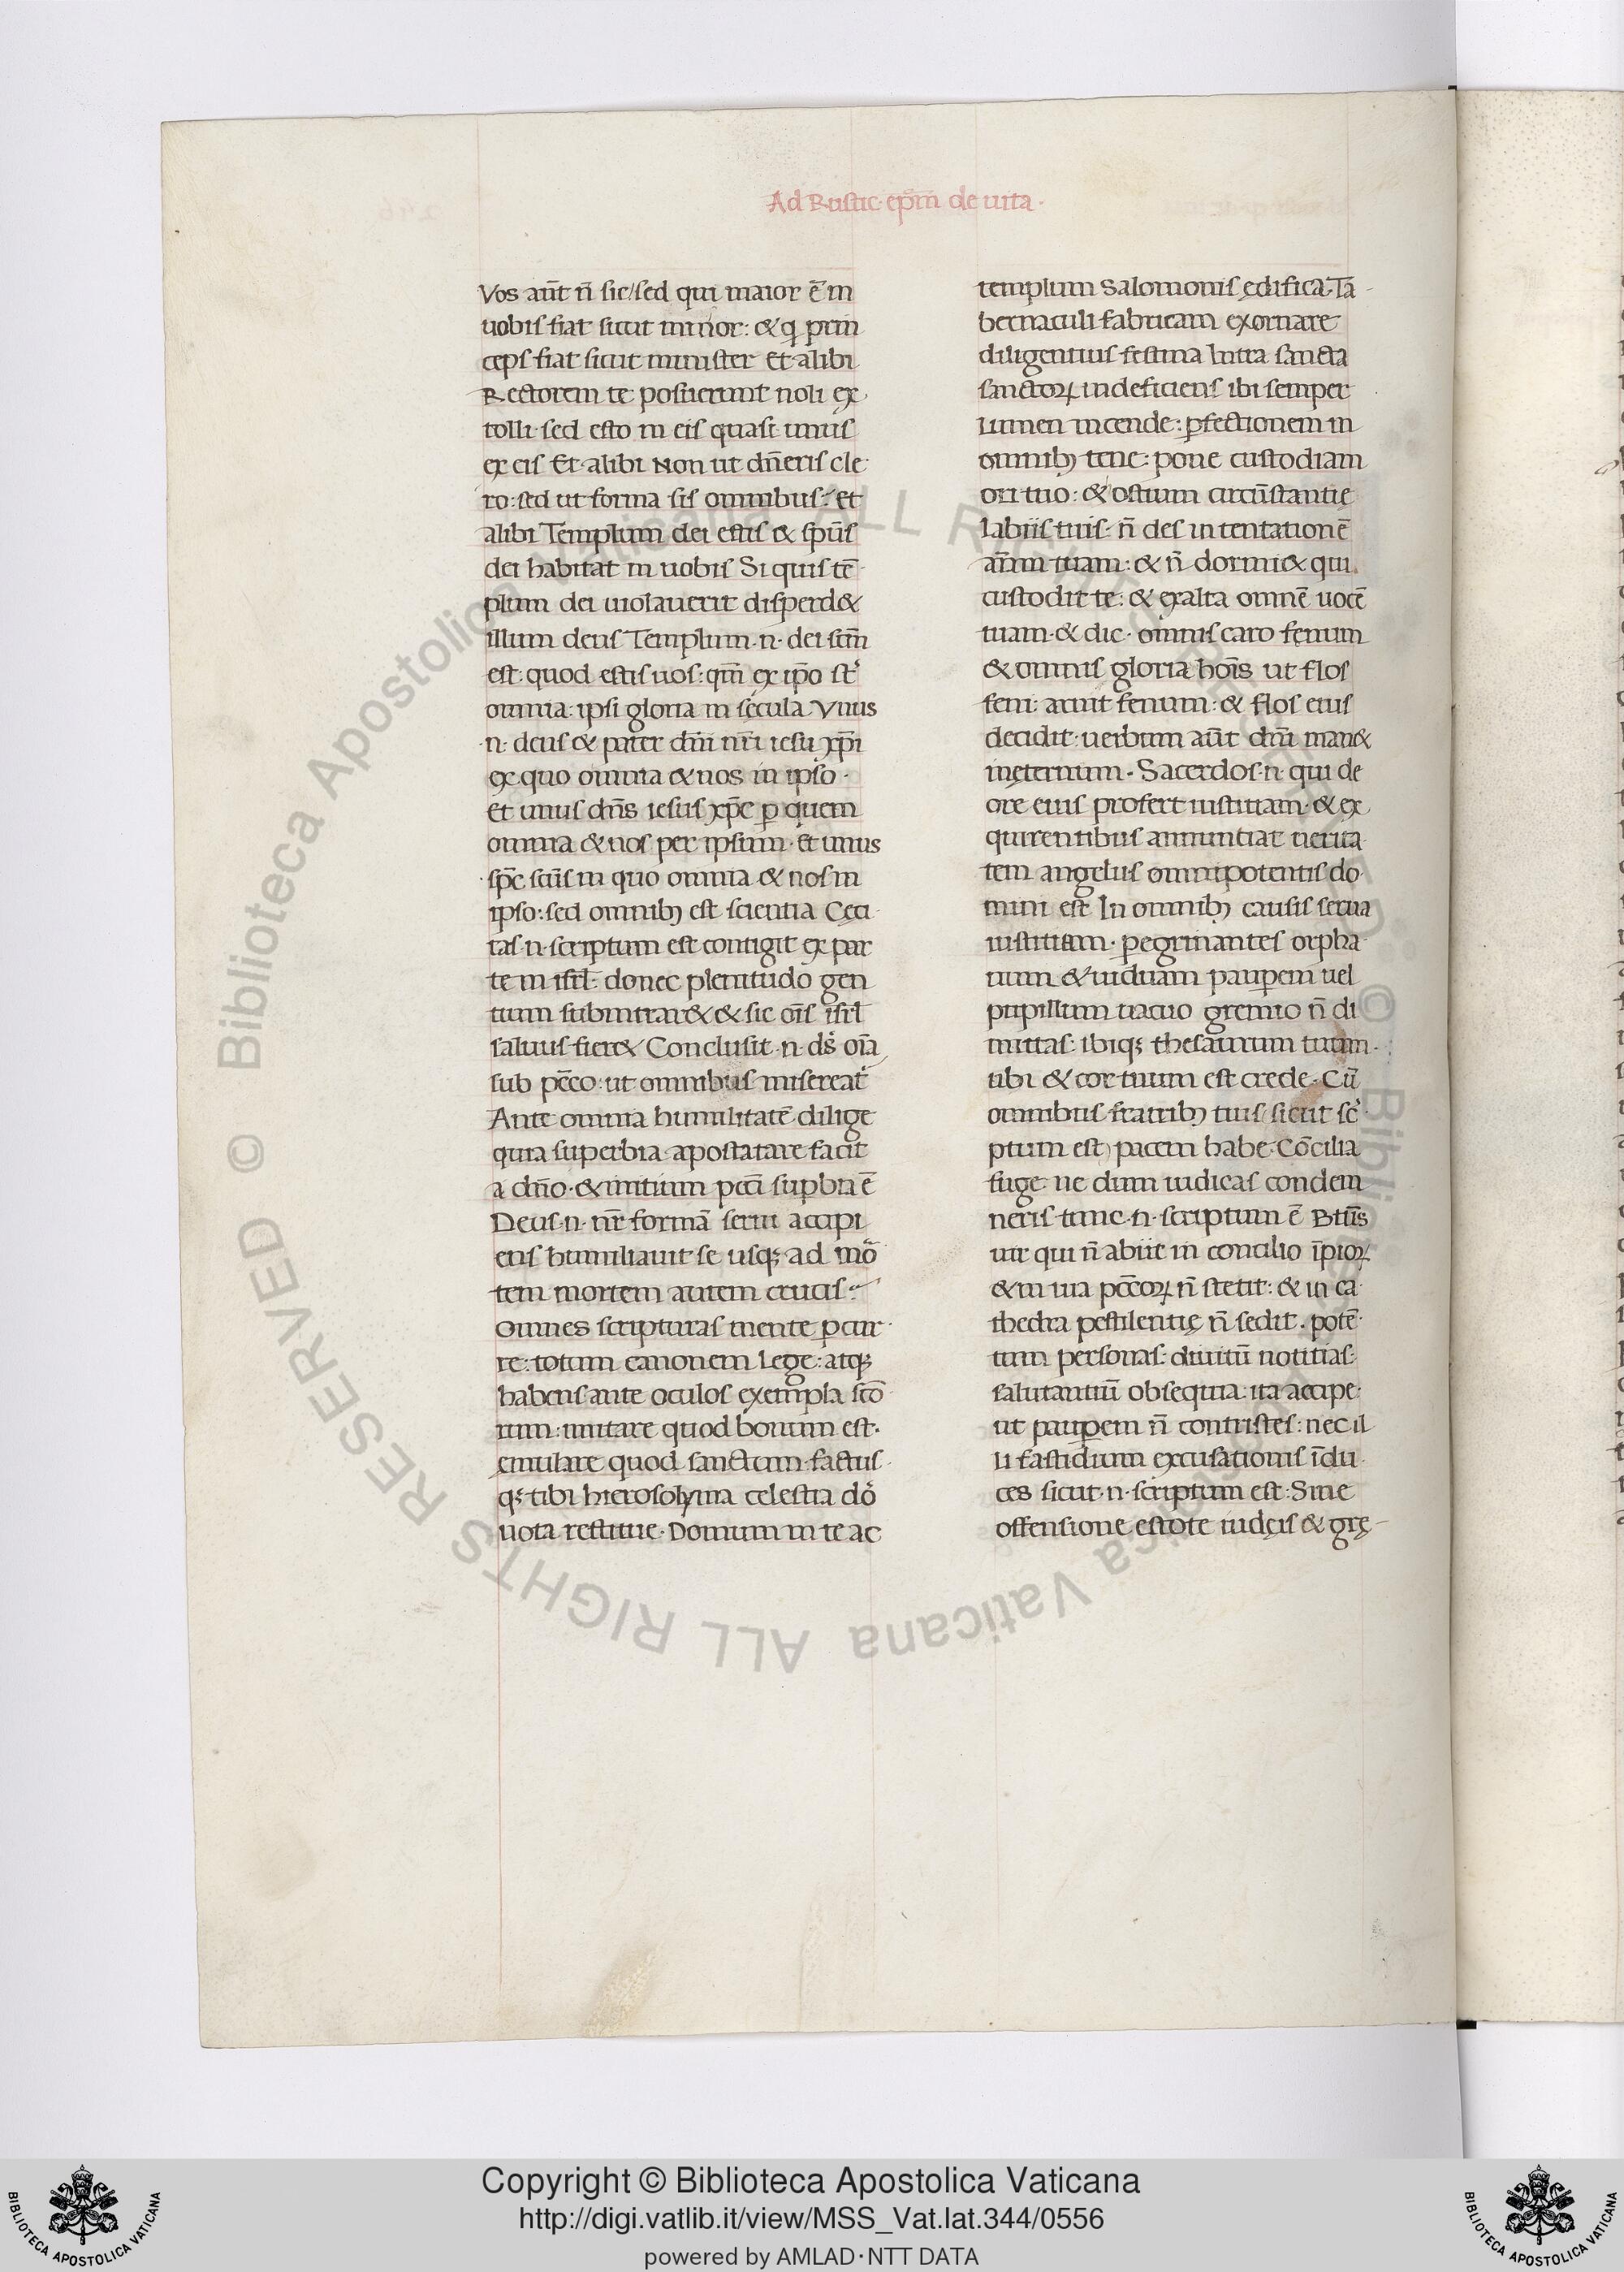 Ad Rustic· ep̄m de uita·
Vos aūt n̄ sic/sed qui maior ē in
uobis fiat sicut minor: & q̣ prin
ceps fiat sicut minister Et alibi
Rectorem te posuerunt noli ex
tolli· sed esto in eis quasi unus
ex eis Et alibi Non ut dn̄eris cle
ro: sed ut forma sis omnibus: Et
alibi Templum dei estis & sp̄us
dei habitat in uobis Si quis tē
plum dei uiolauerit disperd&
illum deus Templum ·n· dei sc̄m
est: quod estis uos: qm̄ ex ip̄o st̄
omnia: ipsi gloria in sęcula Vnus
·n· deus & pater dn̄i nr̄i iesu xp̄i
ex quo omnia & nos in ipso ·
Et unus dn̄s iesus xp̄c ꝑ quem
omnia & nos per ipsum· Et unus
sp̄c sc̄us in quo omnia & nos in
ipso: sed omnibꝫ est scientia Cęci
tas ·n· scriptum est contigit ex par
te in isrl̄· donec plenitudo gen
tium subintrar& & sic oīs isrl̄
saluus fier& Conclusit ·n· ds̄ oīa
sub pc̄co: ut omnibus misereat᷑
Ante omnia humilitatē dilige
quia superbia apostatare facit
a dn̄o· & initium pcc̄i suꝑbia ē
Deus ·n· nr̄ formā serui accipi
ens humiliauit se usqꝫ ad mo᷑
tem mortem autem crucis:
Omnes scripturas mente ꝑcur
re: totum canonem lege: atqꝫ
habens ante oculos exempla sc̄o
rum: imitare quod bonum est·
emulare quod sanctum· factus
qꝫ tibi hierosolyma celestia do᷑
uota restitue· Domum in te ac
templum Salomonis ędifica· Ta
bernaculi fabricam exornare
diligentius festina Intra sancta
sanctoꝝ indeficiens ibi semper
lumen incende: ꝑfectionem in
omnibꝫ tene: pone custodiam
ori tuo: & ostium circūstantię
labiis tuis· n̄ des in tentationē
aīam tuam: & n̄ dormi& qui
custodit te: & exalta omnē uocē
tuam· & dic· omnis caro fenum
& omnis gloria hoīs ut flos
feni: aruit fenum: & flos eius
decidit: uerbum aūt dn̄i man&
in ęternum· Sacerdos ·n· qui de
ore eius profert iustitiam· & ex
quirentibus annuntiat uerita
tem angelus omnipotentis do
mini est In omnibꝫ causis serua
iustitiam· ꝑegrinantes orpha
num & uiduam pauꝑem uel
pupillum uacuo gremio n̄ di
mittas: ibiqꝫ thesaurum tuum
ubi & cor tuum est crede· Cū
omnibus fratribꝫ tuis/ sicut sc᷑
ptum est) pacem habe· Cōcilia
fuge· ne dum iudicas condem
neris tunc ·n· scriptum ē Bt̄us
uir qui n̄ abiit in concilio īpioꝝ
& in uia pc̄coꝝ n̄ stetit: & in ca
thedra pestilentię n̄ sedit· potē
tum personas: diuitū notitias:
salutantiū obsequia: ita accipe:
ut pauꝑem n̄ contristes: nec il
li fastidium excusationis īdu
ces sicut ·n· scriptum est: Sine
offensione estote iudęis & grę
Copyright © Biblioteca Apostolica Vaticana
http://digi.vatlib.it/view/MSS_Vat.lat.344/0556
powered by AMLAD·NTT DATA